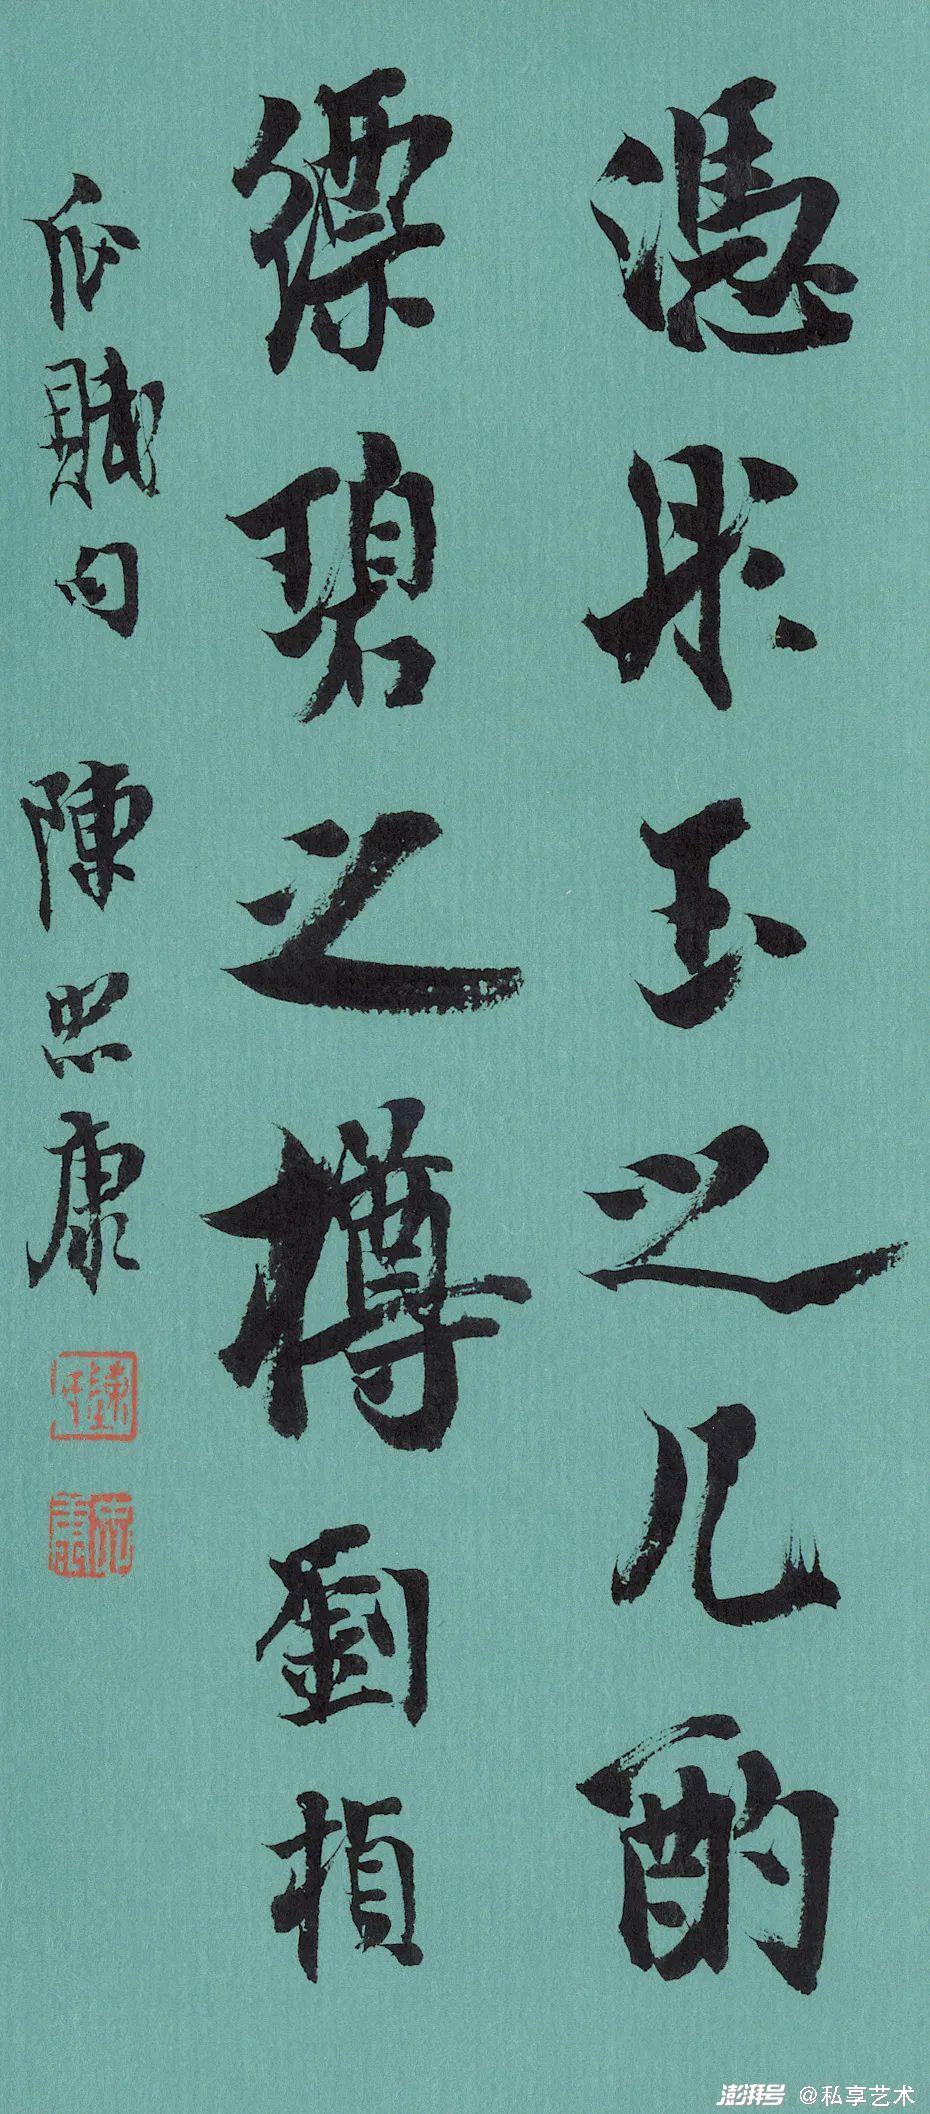 憑彤玉之几酌
縹碧之樽劉楨
瓜賦句 陳忠康
澎湃号 @私享艺术